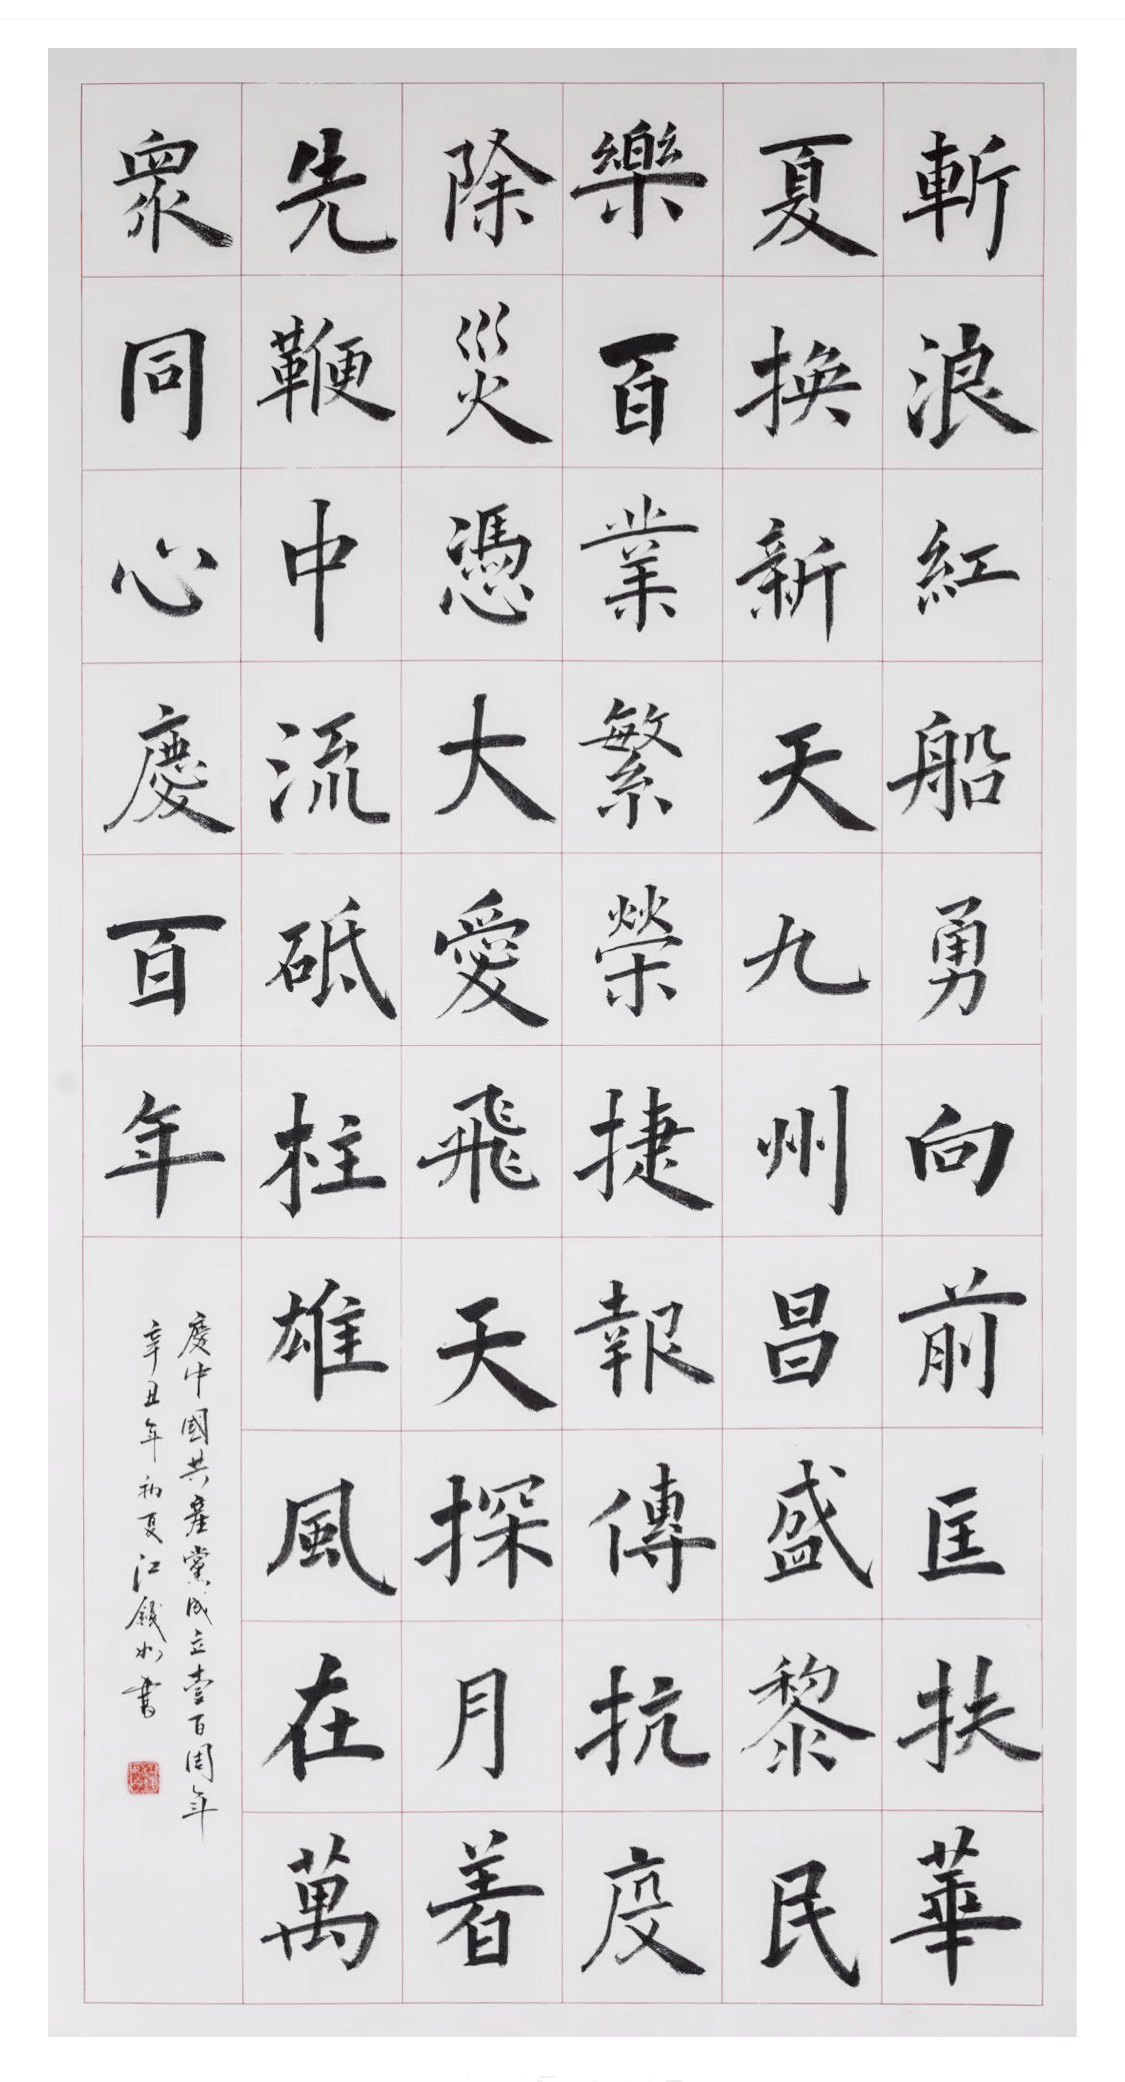 斬浪紅船勇向前匡扶華
夏換新天九州昌盛黎民
樂百業繁榮捷報傳抗疫
除災憑大愛飛天探月着
先鞭中流砥柱雄風在萬
衆同心慶百年
慶中國共產黨成立壹百周年
辛丑年初夏江書